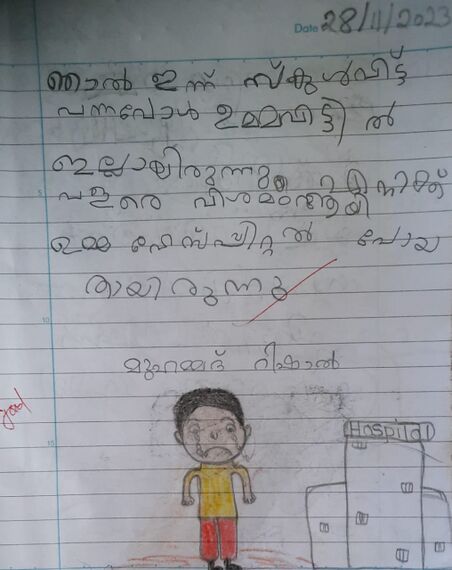 Date 28/11/2023
ഞാൽ ഇന്ന് സ്കുൾവിട്ട്
വന്നപ്പോൾ ഉമ്മവിട്ടി ൽ
ഇല്ലായിരുന്നു എനിക്ക്
വളരെ വിശമംആയി
ഉമ്മ ഹേസ്പ്പിറ്റൽ പോയ
തായി രുന്നു
മുഹമ്മദ് റിഷാൽ
good
Hospital